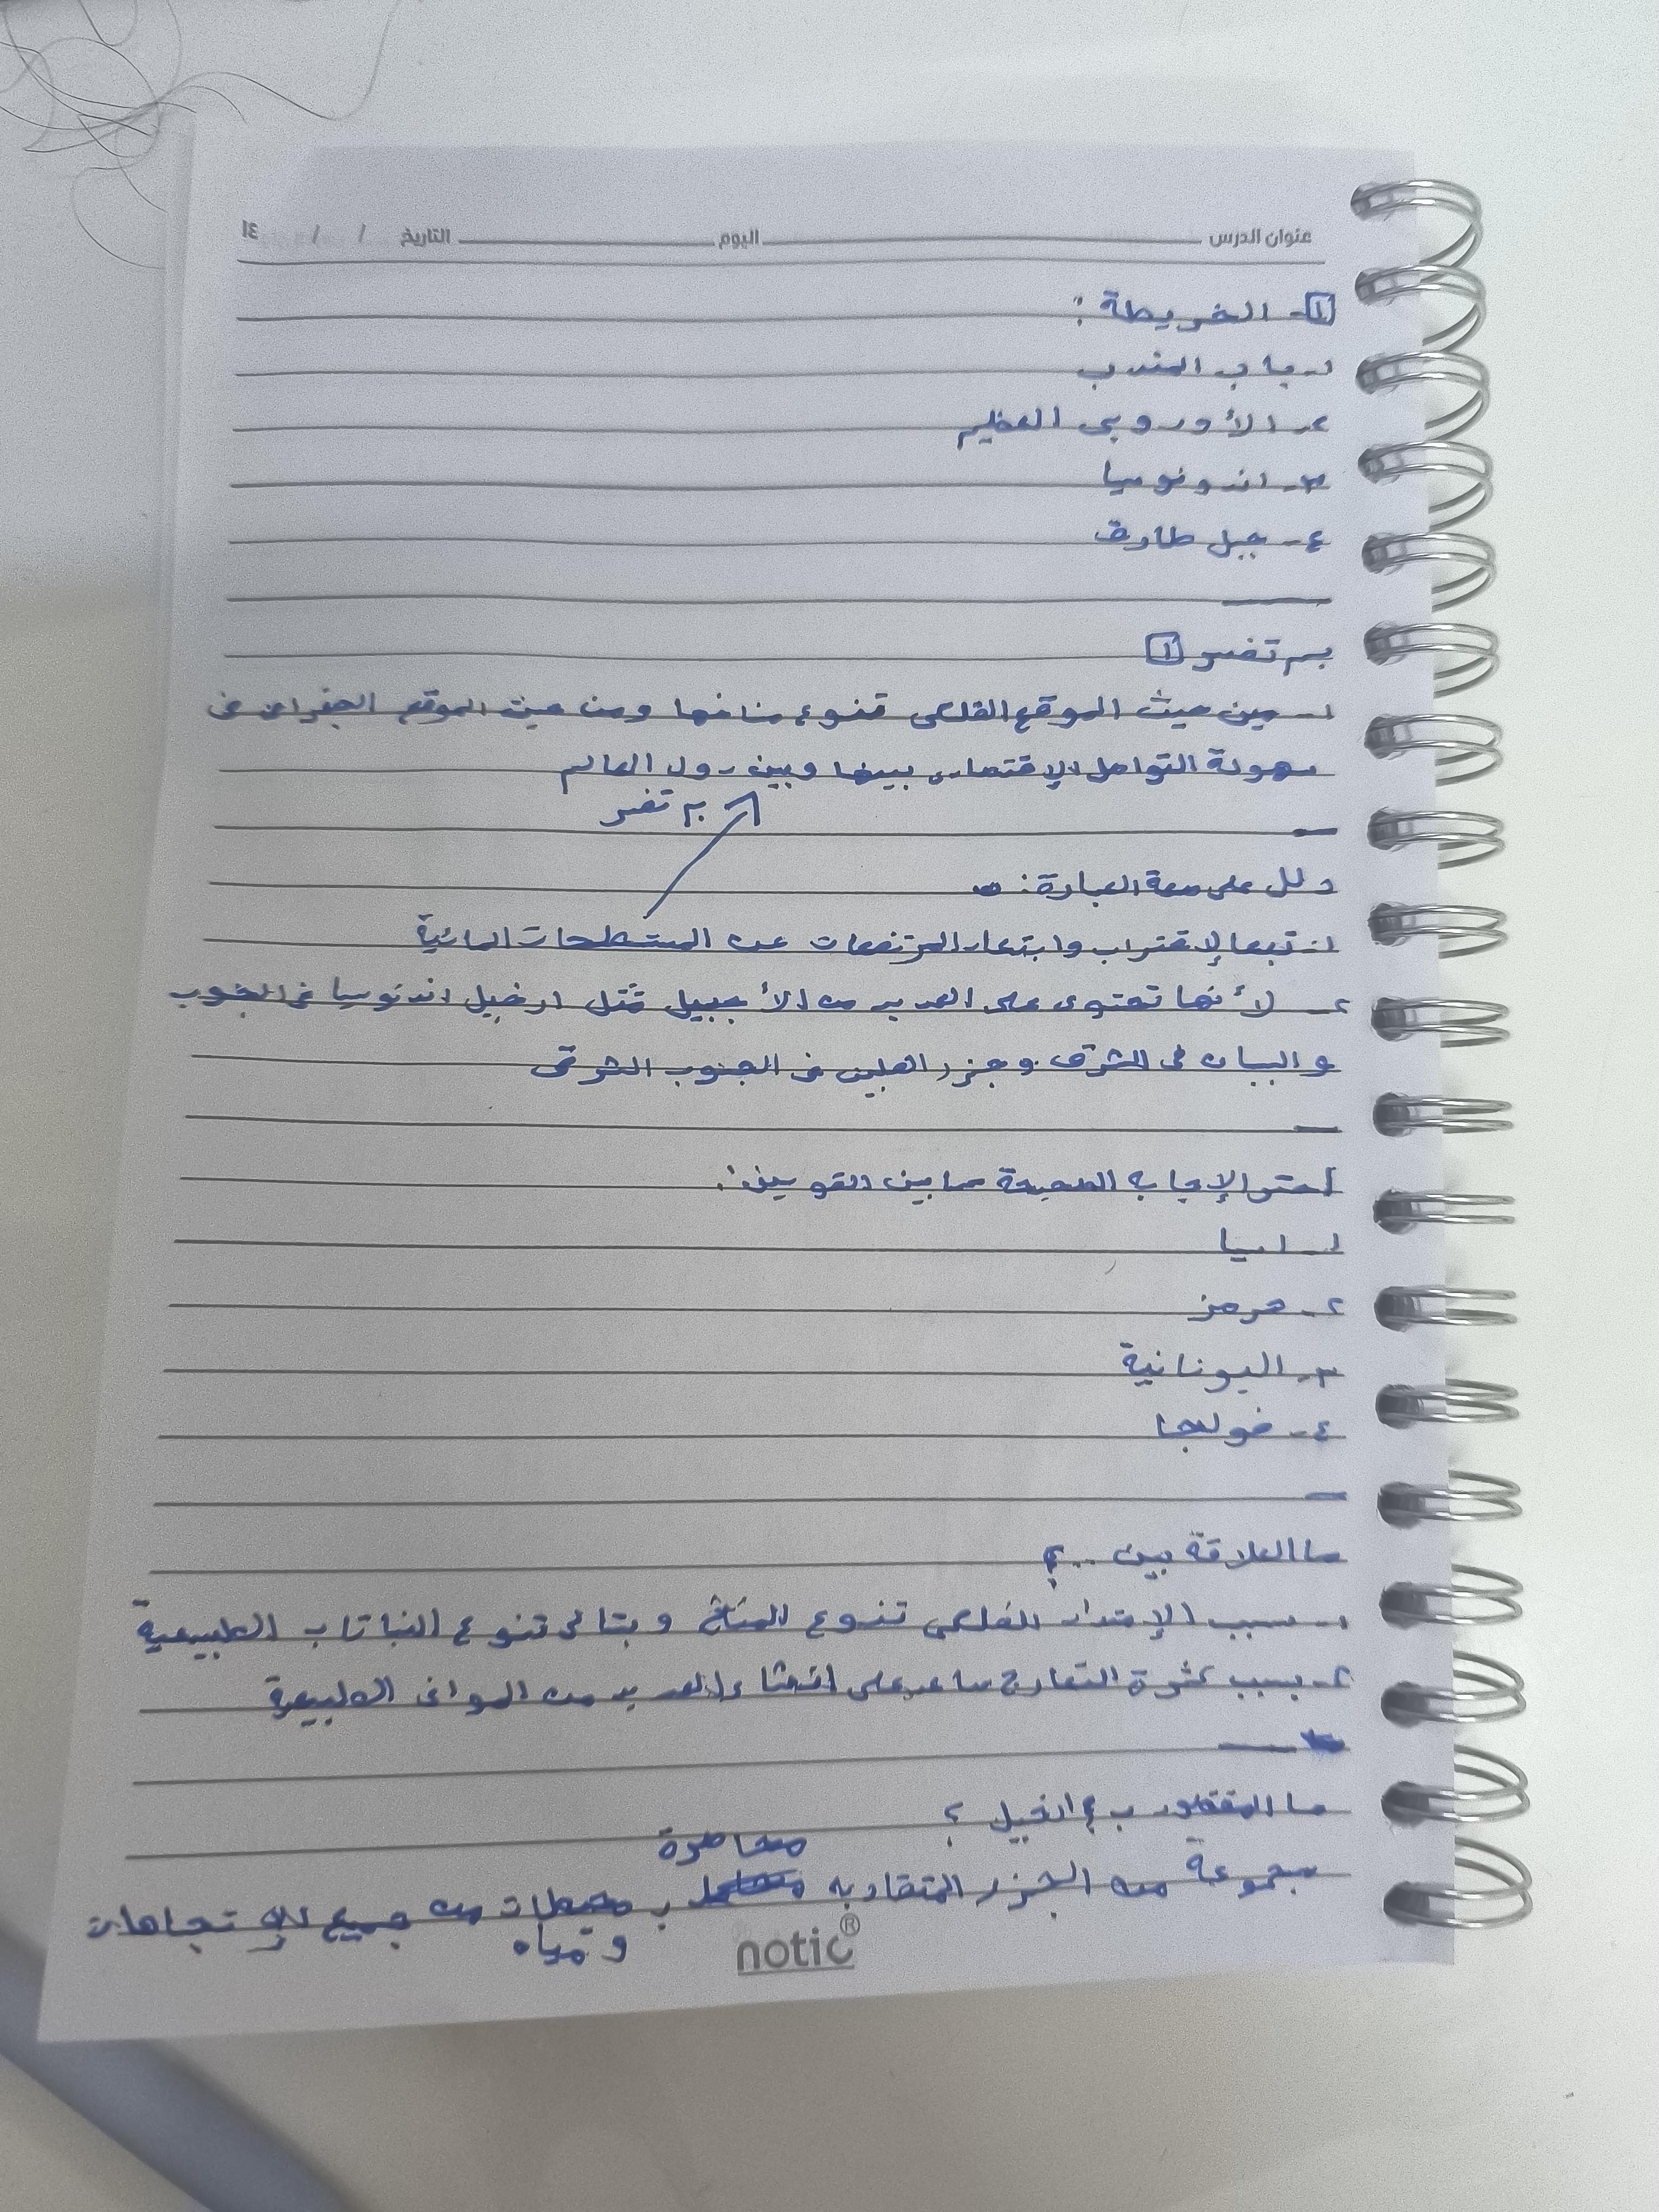 عنوان الدرس اليوم التاريخ / / ١٤
١- الخريطة :
١- باب المندب
٢- الأوروبى العظيم
٣- اندونوسيا
٤- جبل طارق
بم تفسر ١
١- من حيث الموقع الفلكى تنوع مناخها ومن حيث الموقع الجغرافى فى
سهولة التواصل الإقتصادى بينها وبين دول العالم
بم تفسر
دلل على صحة العبارة :
١- تبعا لإقتراب وابتعاد المرتفعات عن المسطحات المائية
٢- لأنها تحتوى على العديد من الأرخبيل مثل ارخبيل اندنوسيا فى الجنوب
و اليبان فى الشرق و جزر الفلبين فى الجنوب الشرقى
أختر الإجابه الصحيحة مما بين القوسين :
١- اسيا
٢- هرمز
٣- اليونانية
٤- فولجا
ما العلاقة بين .. ؟
١- بسبب الإمتداد الفلكى تنوع المناخ و بتالى تنوع النباتاب الطبيعية
٢- بسبب كثرة التعاريج ساعد على انشاء العديد من الموانى الطبيعية
ما المقصود ب ارخبيل ؟
محاصرة
مجموعة من الجزر المتقاربه ب محيطات من جميع الإتجاهات
و مياه
notic®